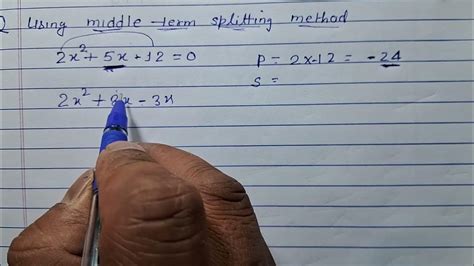 Q Using middle-term splitting method
2x² + 5x - 12 = 0
P = 2x-12 = -24
S =
2x² + 8x - 3x